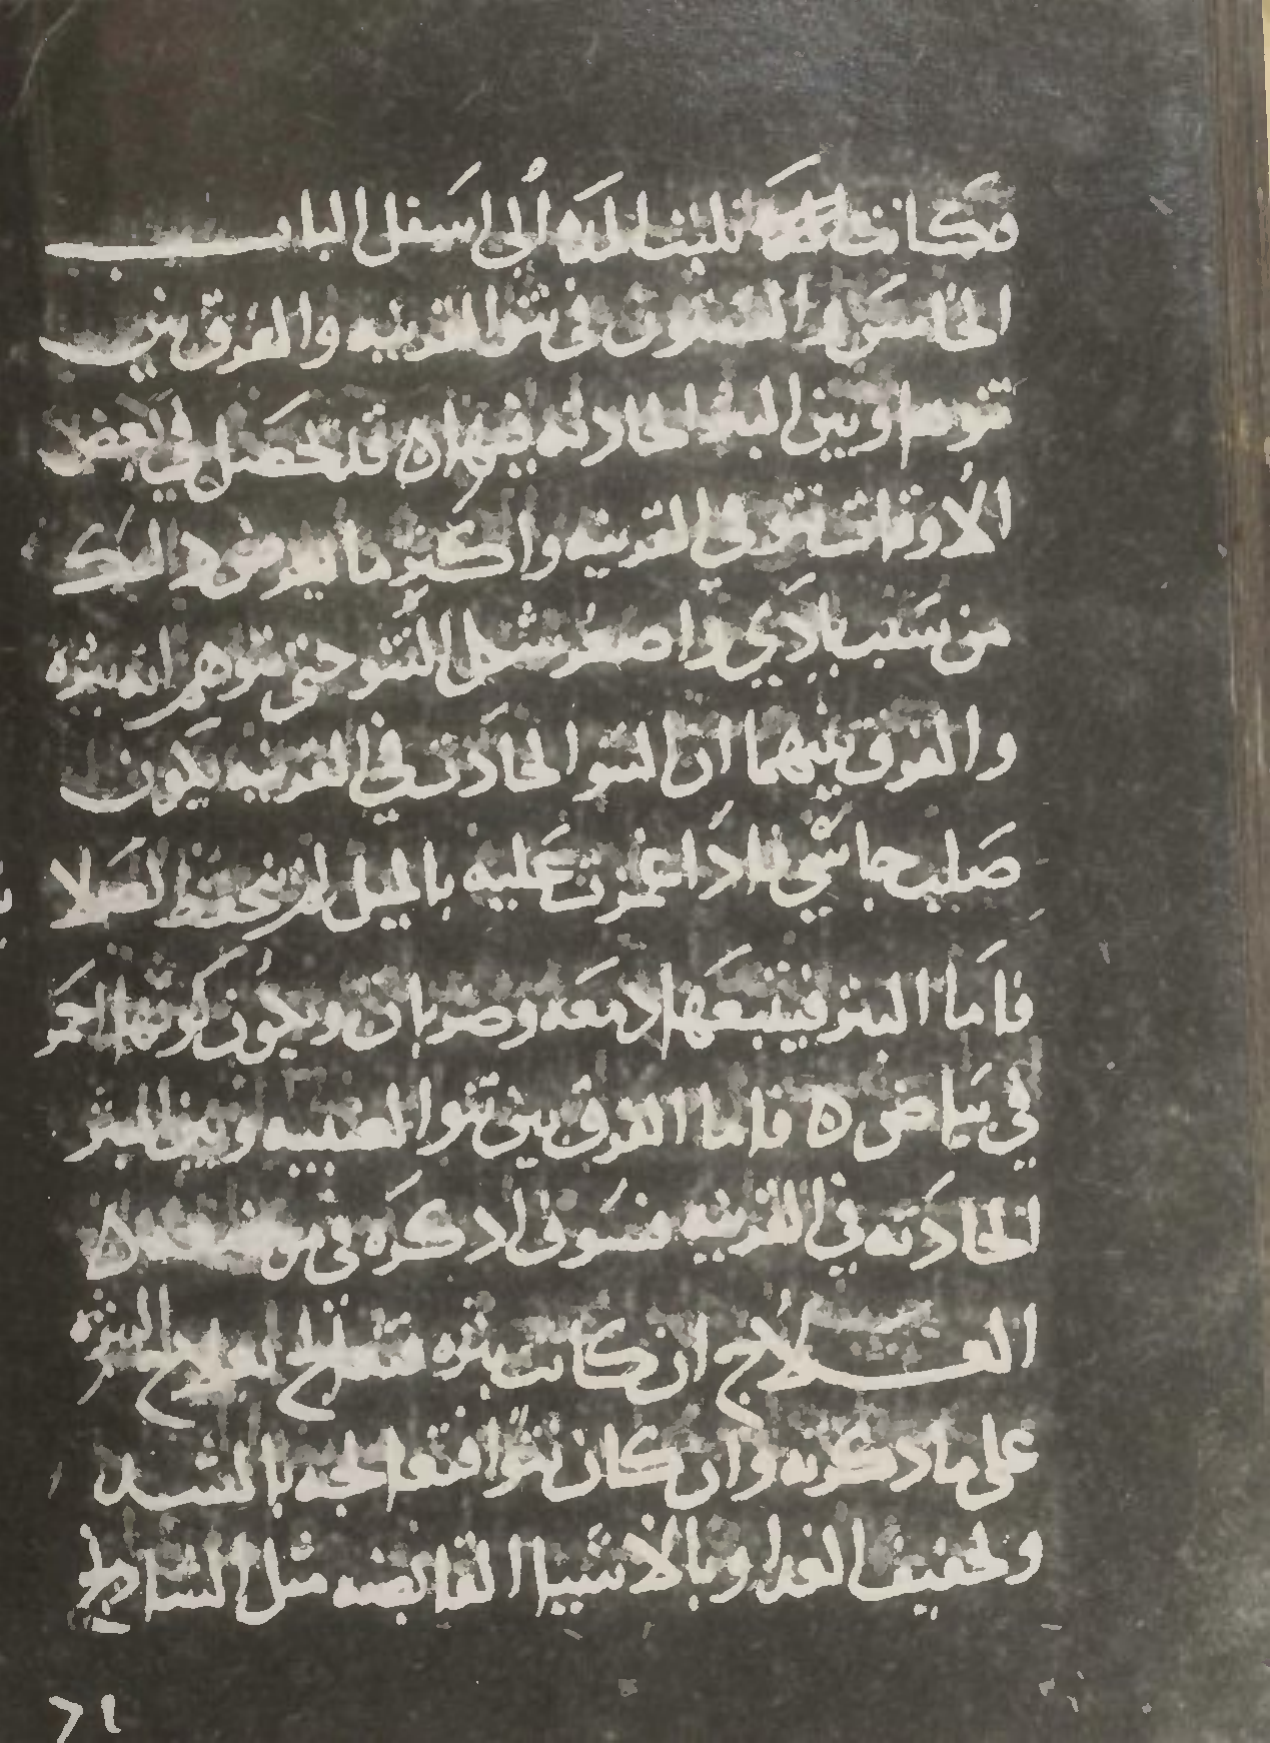 مكانها للبتا لله الى اسفل الباب
الخامس والخمسون في نتوا القرنيه والفرق بين
نتوها وبين البثر الحادثه فيها ه قد تحصل في بعض
الاوقات نتو في القرنيه واكثر ما يعرض ذلك
من سبب بادي واصغر شكل النتو حتى يتوهم انه بثره
والفرق بينهما ان النتو الحادث في القرنيه يكون
صلب جاسي فاذا غمزت عليه بالميل لم ينخفظ لصلا
فاما البثر فيتبعها دمعه وضربان ويكون لونها احمر
في بياض ه فاما الفرق بين نتوا العنبيه وبين البثر
الحادثه في القرنيه فسوف اذكره في موضعه ه
العلاج ان كانت بثره فتصلح لعلاج البثره
على ما ذكرته وان كان نتوا فتعالجه بالشد
وتخفيف الغدا وبالاشيا القابضه مثل الشادنج
٦١